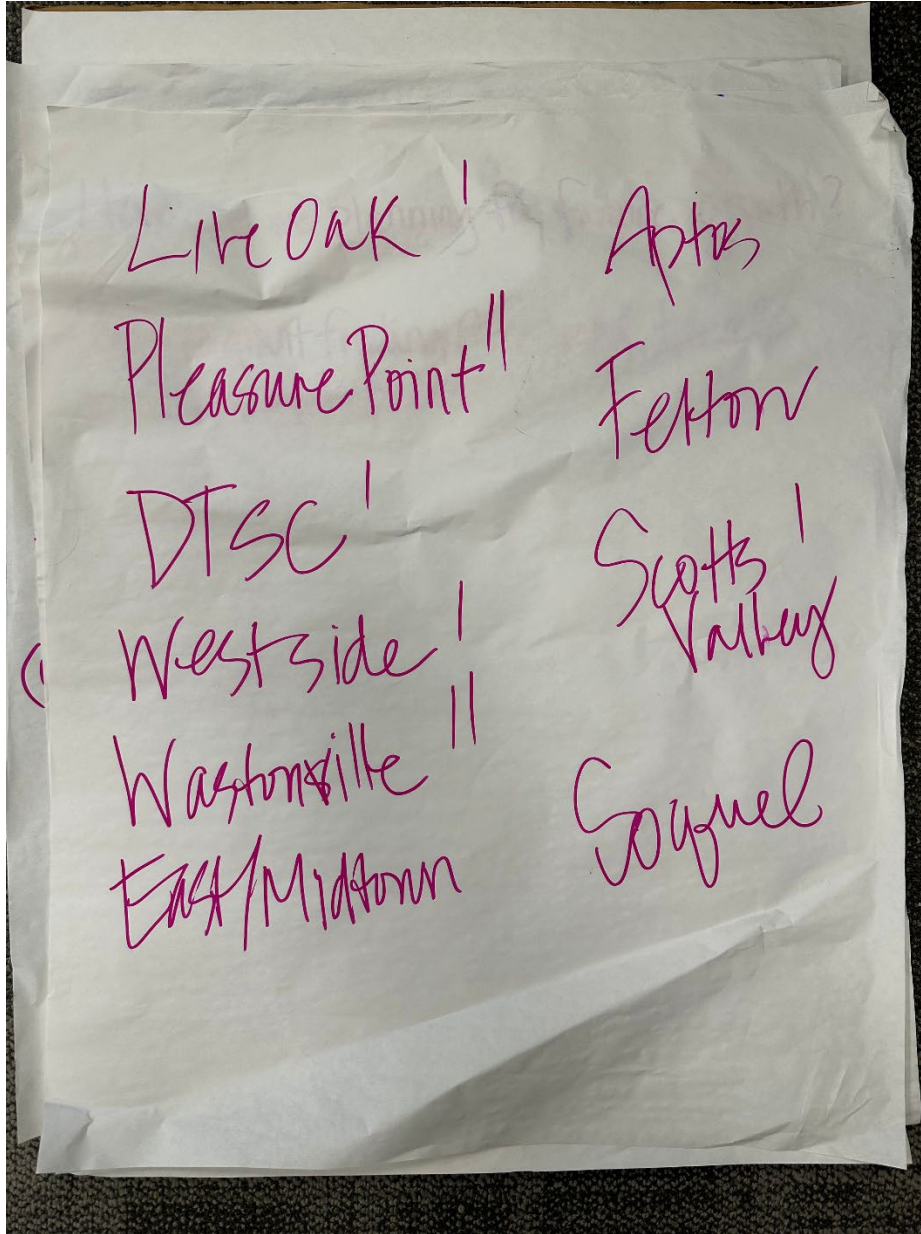 Live Oak |
Pleasure Point ||
DTSC |
Westside |
Wastonville ||
East/Midtown
Aptos
Felton
Scotts |
Valley
Soquel